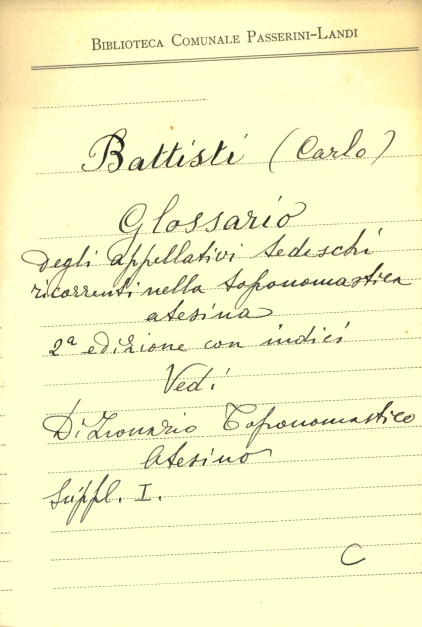 Biblioteca Comunale Passerini-Landi
Battisti (Carlo)
Glossario
degli appellativi tedeschi
ricorrenti nella toponomastica
atesina
2ª edizione con indici
Vedi
Dizionario Toponomastico
Atesino
Suppl. I.
C